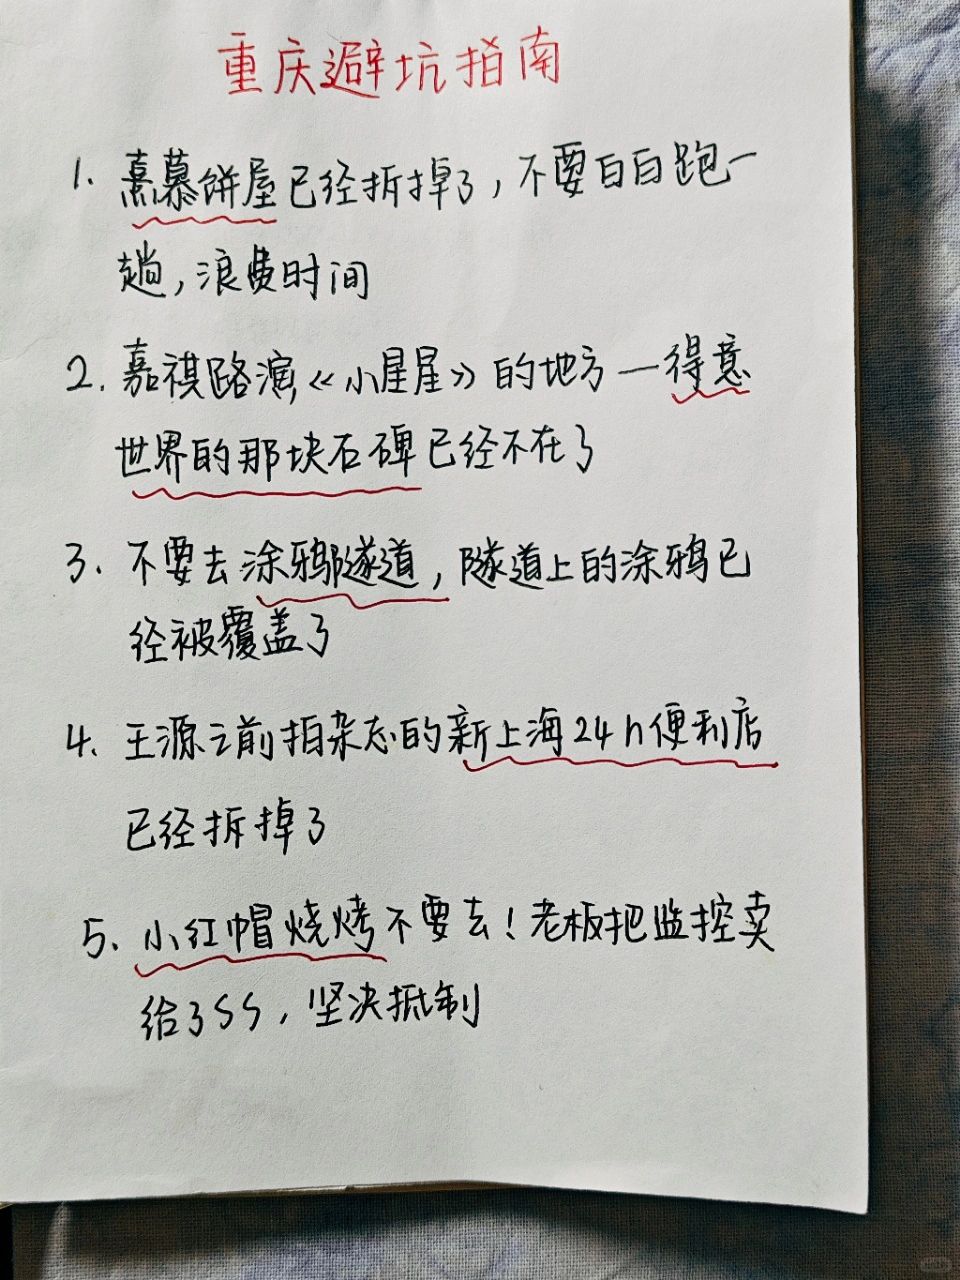 重庆避坑指南
1. 熹慕饼屋已经拆掉了，不要白白跑一
趟，浪费时间
2. 嘉祺路演《小星星》的地方一得意
世界的那块石碑已经不在了
3. 不要去涂鸦隧道，隧道上的涂鸦已
经被覆盖了
4. 王源之前拍杂志的新上海24h便利店
已经拆掉了
5. 小红帽烧烤不要去！老板把监控卖
给了SS，坚决抵制